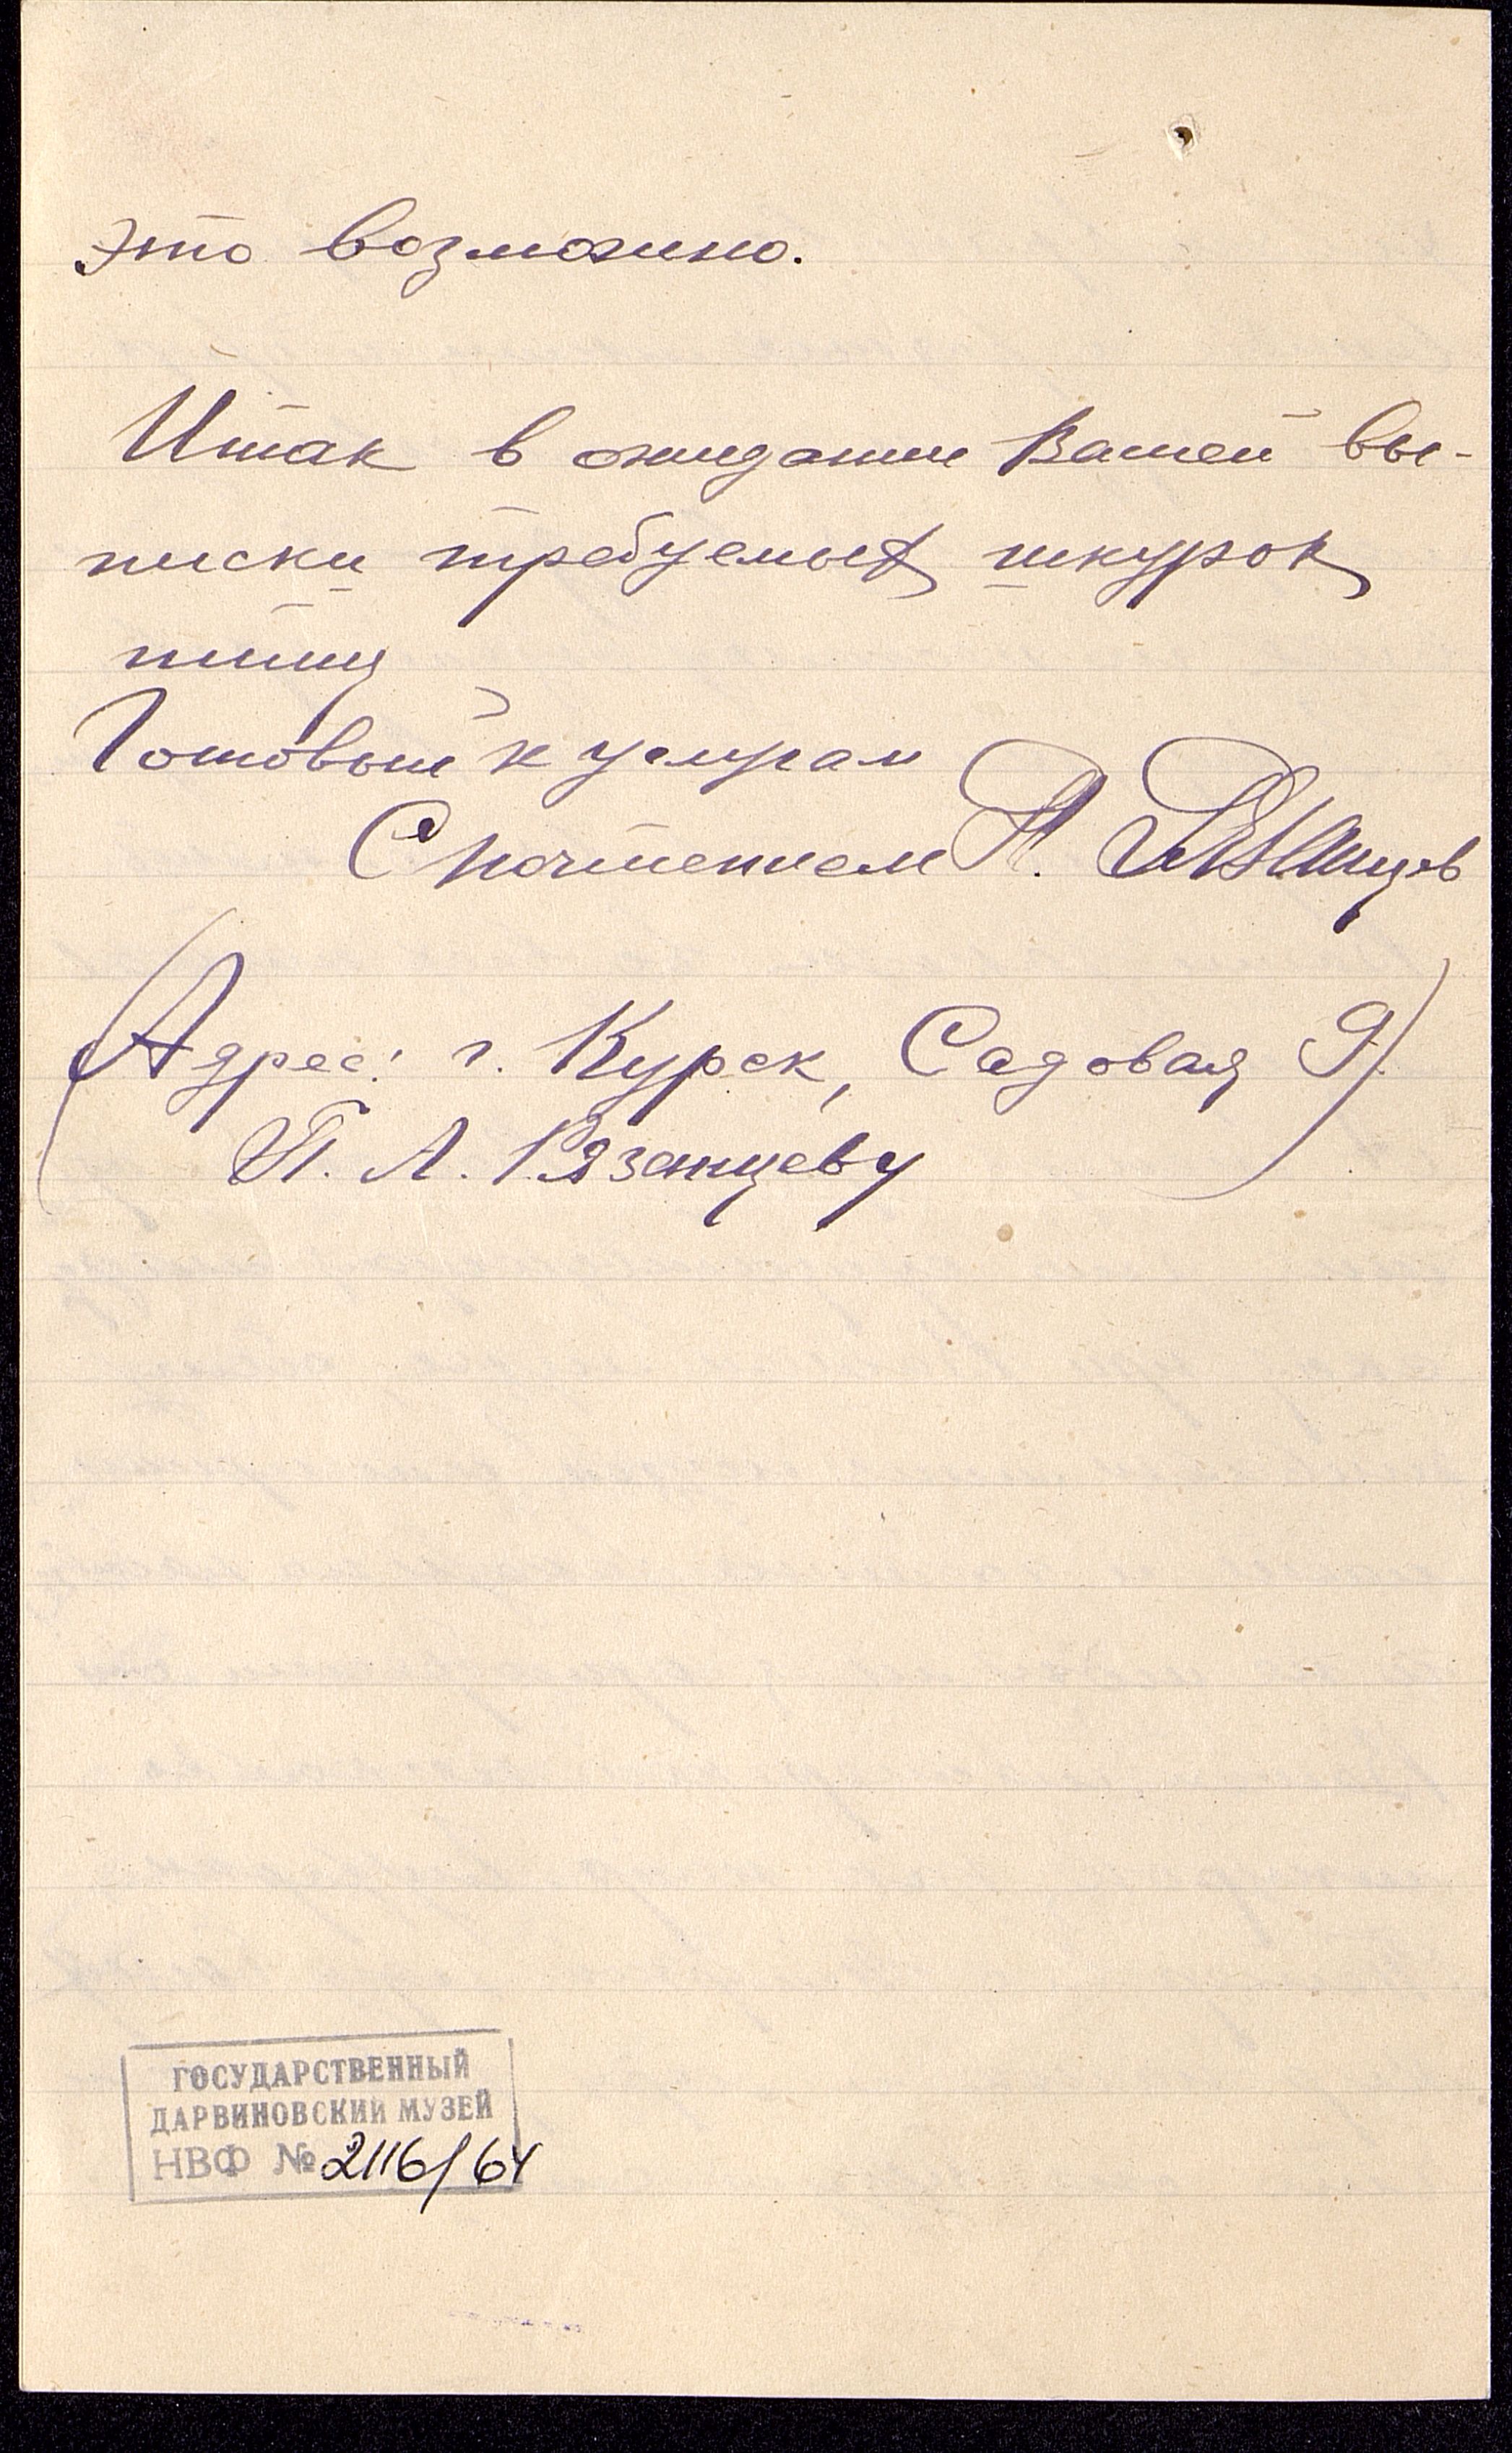 это возможно.
Итак в ожидании Вашей вы-
писки требуемых шкурок
птиц
Готовый к услугам
С почтением П. Рязанцев
(Адрес: г. Курск, Садовая 9)
П. А. Рязанцеву
ГОСУДАРСТВЕННЫЙ
ДАРВИНОВСКИЙ МУЗЕЙ
НВФ № 2116/64